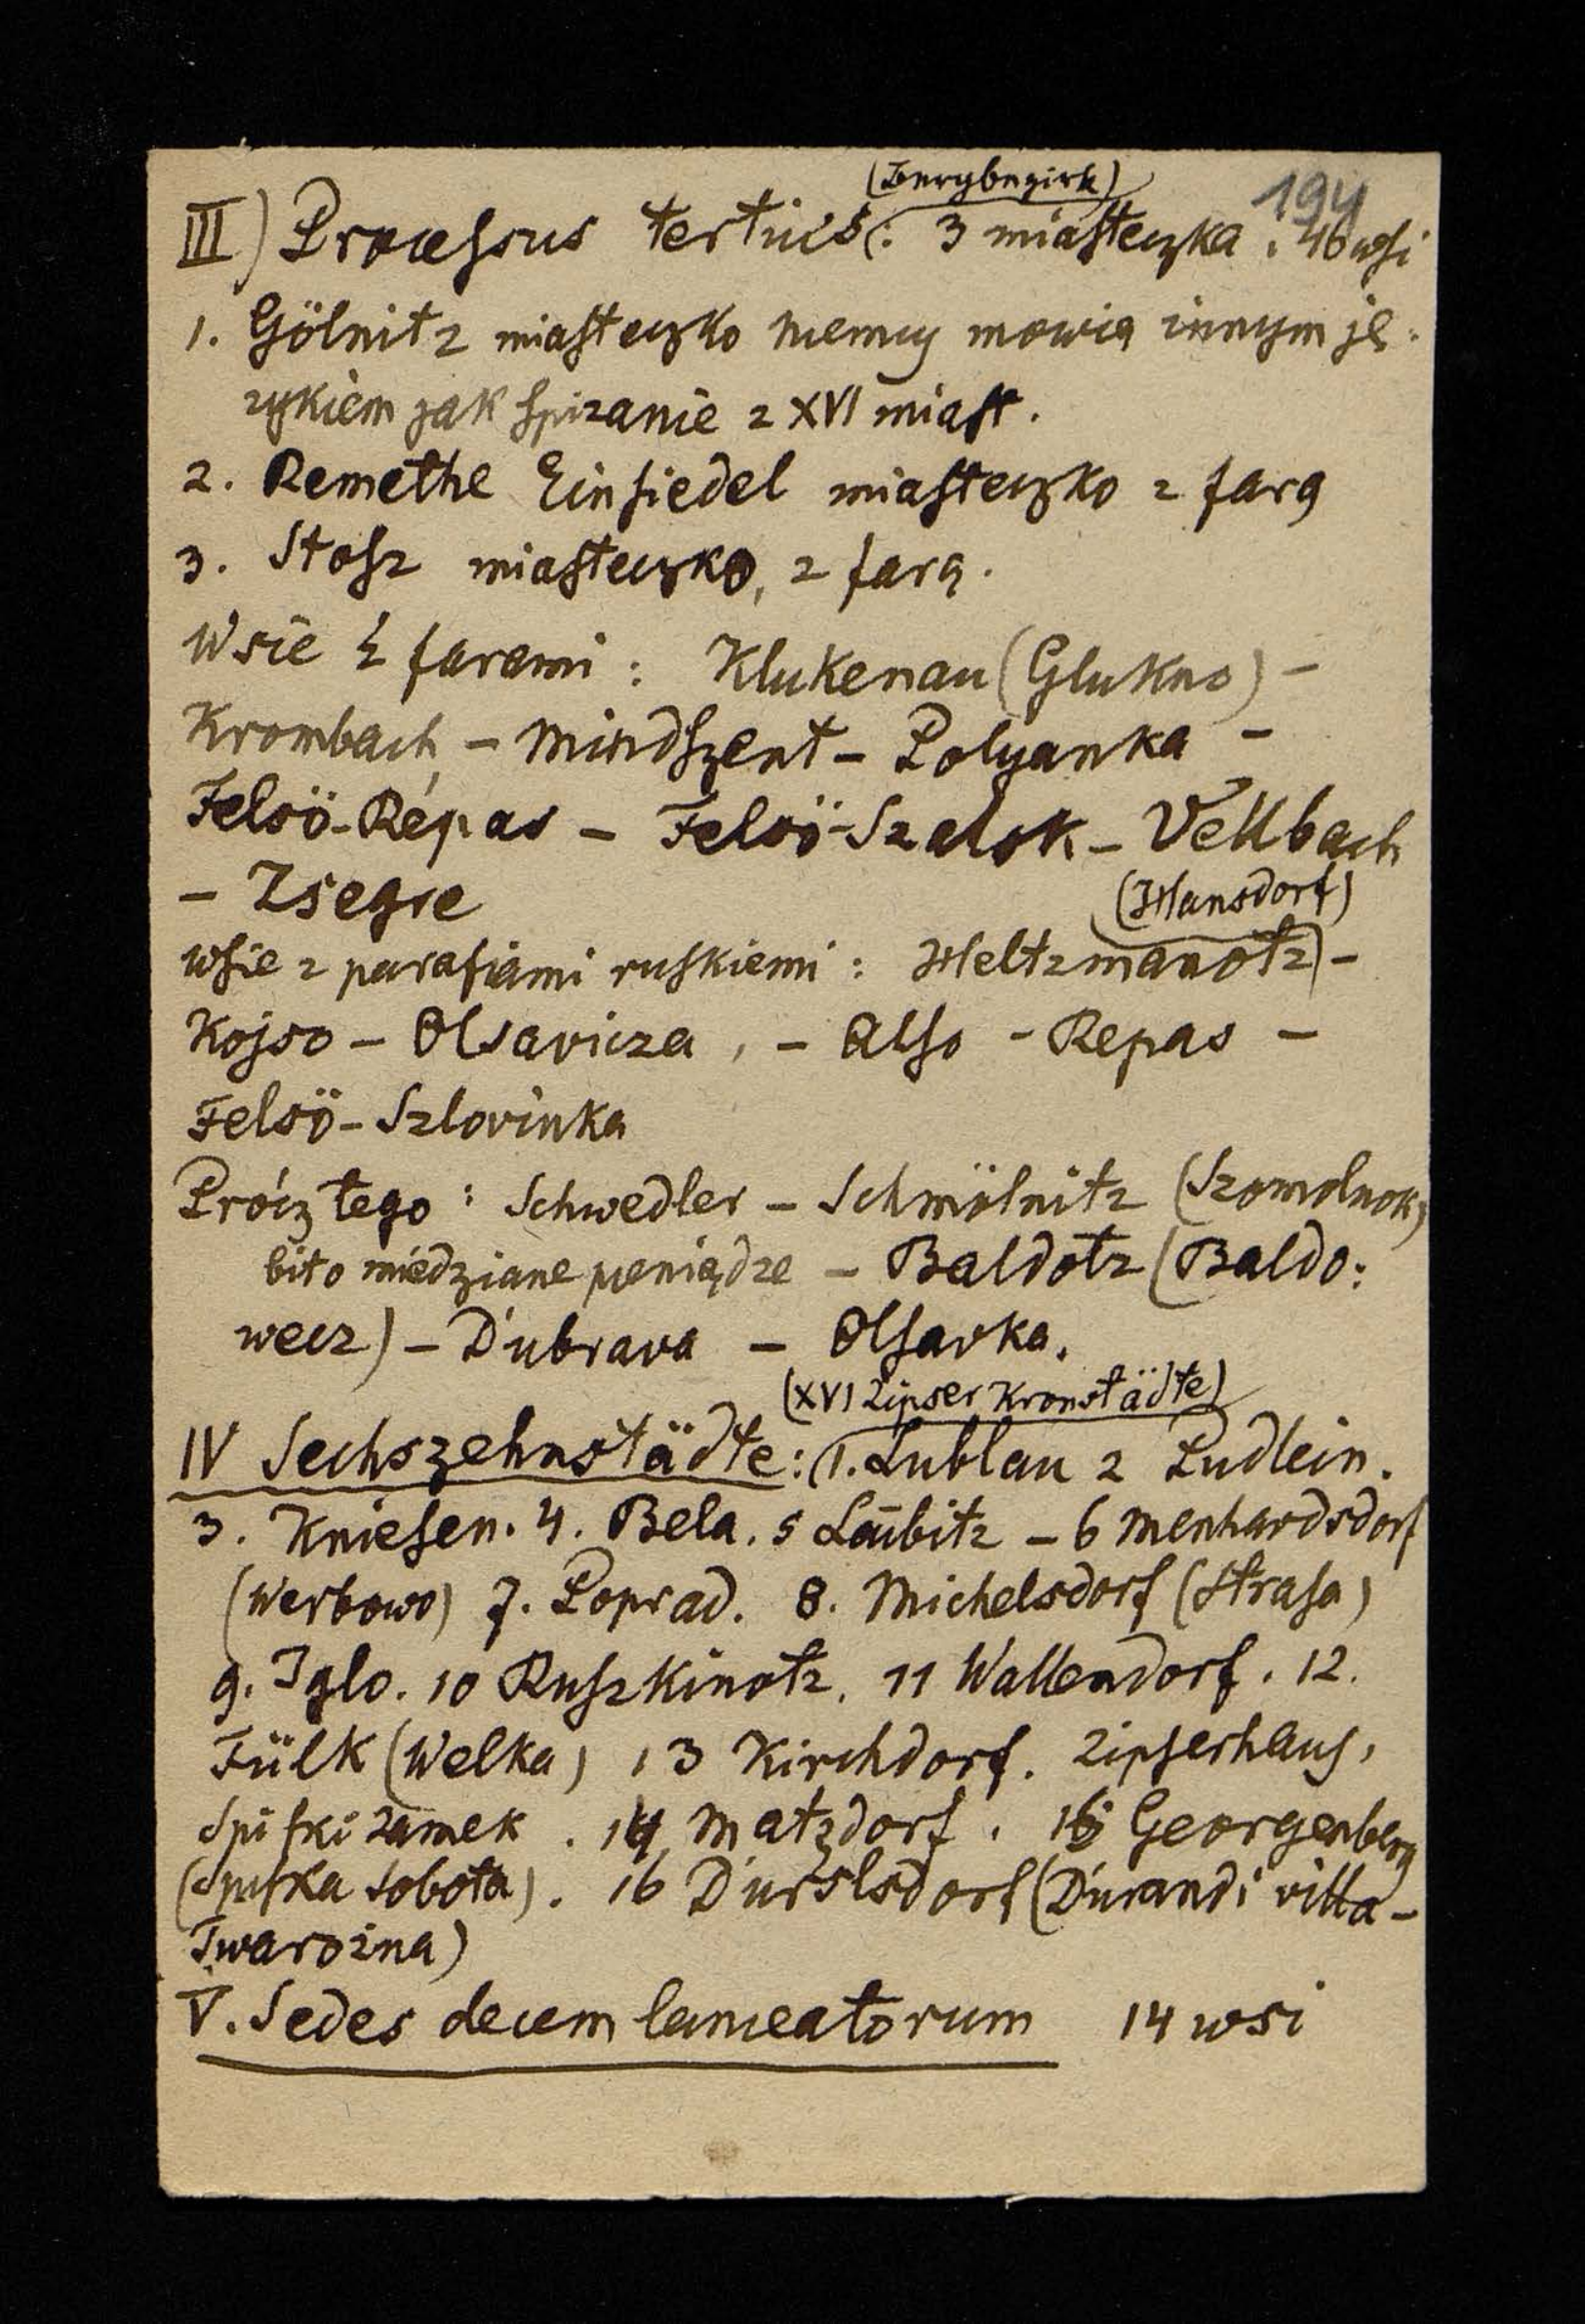 194
(Bergbezirk)
III) Processus tertius: 3 miasteczka. 46 wsi
1. Gölnitz miasteczko niemcy mowią innym ję-
zykiem jak Spizanie z XVI miast.
2. Remethe Einsiedel miasteczko z farą
3. Stosz miasteczko, z farą.
Wsie z farami: Klukenau (Glukno) -
Krombach - Mindszent - Polyanka -
Felsö-Répas - Felsö-Szalok - Vellbach
- Zsegre
(Hansdorf)
wsie z parafiami ruskiemi: Heltzmanotz -
Kojso - Olsavicza, - Also - Repas -
Felsö-Szlovinka
Prócz tego: Schwedler - Schmölnitz (Szomolnok)
bito miedziane pieniądze - Baldotz (Baldo:
wecz) - Dubrava - Olsavka.
(XVI Zipser Kronstädte)
IV Sechszehnstädte: 1. Lublau 2 Pudlein.
3. Kniesen. 4. Bela. 5 Laübitz - 6 Menhardsdorf
(Werbowo) 7. Poprad. 8. Michelsdorf (Strasa)
9. Iglo. 10 Ruszkinotz. 11 Wallendorf. 12.
Fülk (Welka) 13 Kirchdorf. Zipserhaus,
Spiski zamek. 14 Matzdorf. 15 Georgenberg
(Spiska sobota). 16 Durslsdorf (Durandi villa -
Twarozna)
V. Sedes decem lanceatorum 14 wsi